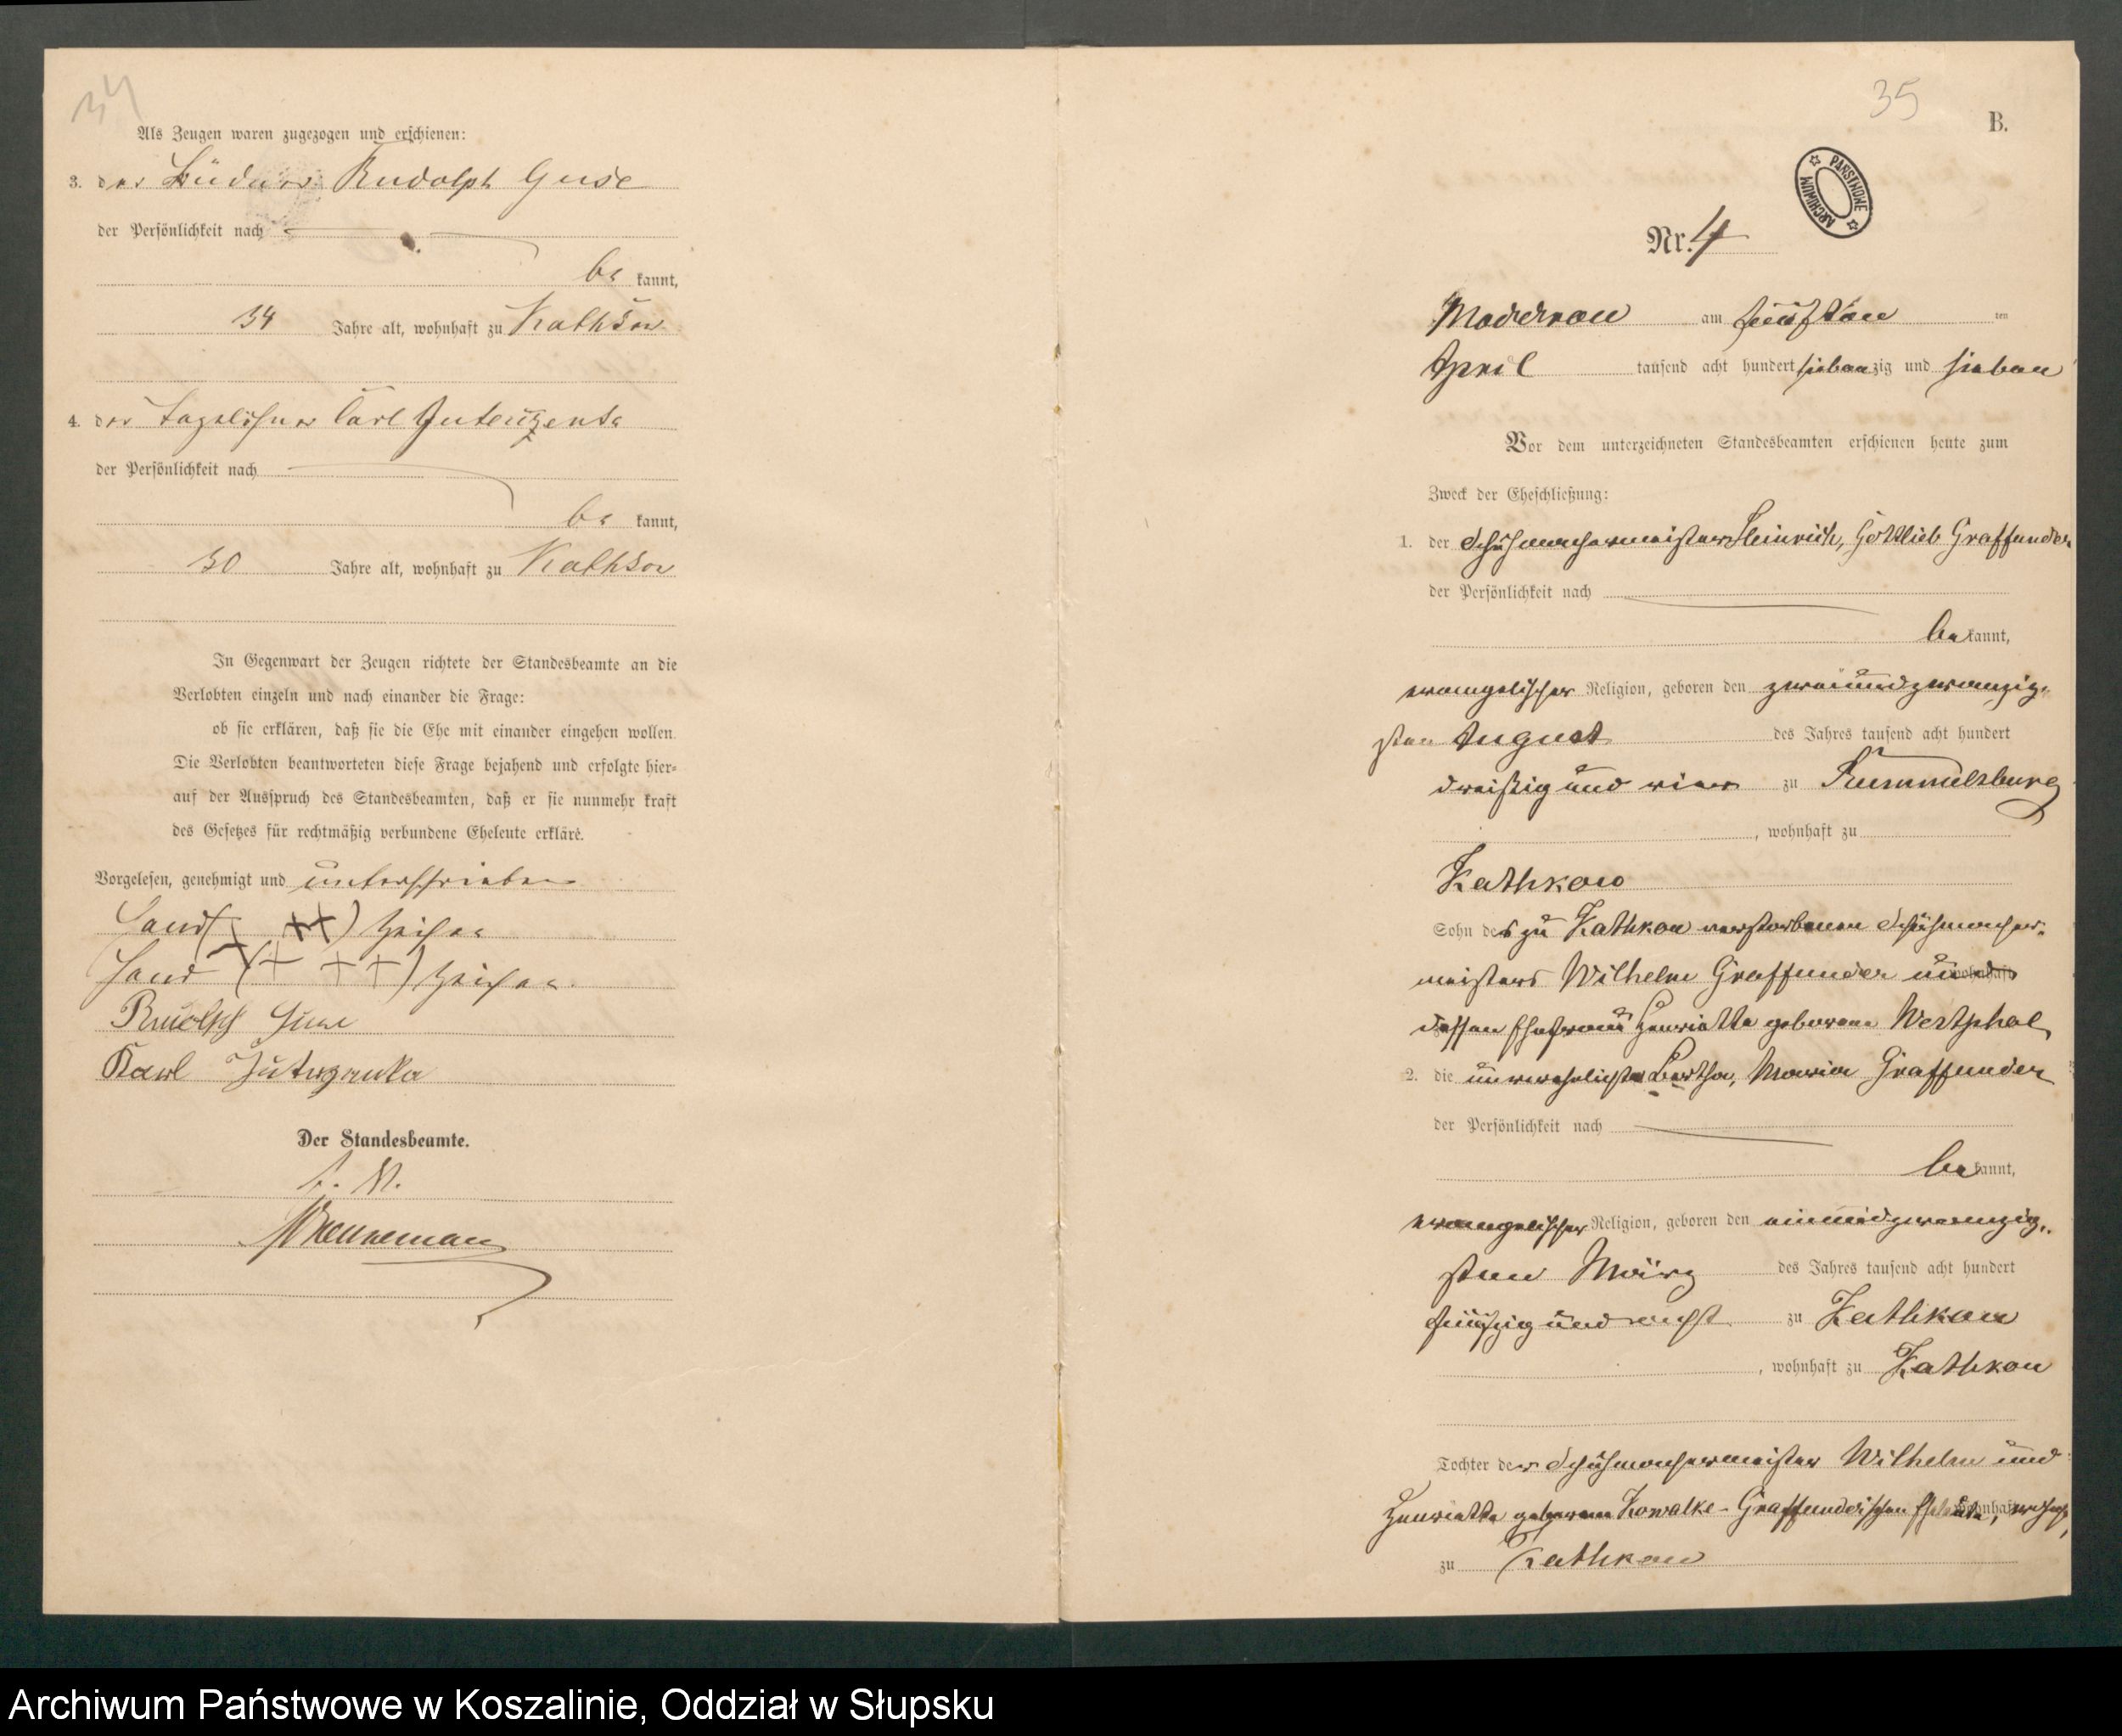 34
Als Zeugen waren zugezogen und erschienen:
3. der Büdner Rudolph Guse
der Persönlichkeit nach
be kannt,
34 Jahre alt, wohnhaft zu Kathkow
4. der Tagelöhner Carl Gutenzente
der Persönlichkeit nach
be kannt,
30 Jahre alt, wohnhaft zu Kathkow
In Gegenwart der Zeugen richtete der Standesbeamte an die
Verlobten einzeln und nach einander die Frage:
ob sie erklären, daß sie die Ehe mit einander eingehen wollen.
Die Verlobten beantworteten diese Frage bejahend und erfolgte hier-
auf der Ausspruch des Standesbeamten, daß er sie nunmehr kraft
des Gesetzes für rechtmäßig verbundene Eheleute erkläre.
Vorgelesen, genehmigt und unterschrieben
Hand (+ ++) Zeichen
Hand (+ ++) Zeichen
Rudolph Guse
Karl
Der Standesbeamte.
35
B.
ARCHIWUM PAŃSTWOWE
Nr. 4
Modderow am fünften ten
April tausend acht hundert siebenzig und sieben
Vor dem unterzeichneten Standesbeamten erschienen heute zum
Zweck der Eheschließung:
1. der Schuhmachermeister Heinrich, Gottlieb Graffunder
der Persönlichkeit nach
be kannt,
evangelischer Religion, geboren den zweiundzwanzig-
sten August des Jahres tausend acht hundert
dreißig und vier zu Rummelsburg
, wohnhaft zu
Kathkow
Sohn des zu Kathkow verstorbenen Schuhmacher-
meisters Wilhelm Graffunder und wohnhaft
dessen Ehefrau Henriette geborene Westphal
2. die unverehelichte Bertha, Maria Graffunder
der Persönlichkeit nach
be kannt,
evangelischer Religion, geboren den einundzwanzig-
sten März des Jahres tausend acht hundert
fünfzig und acht zu Kathkow
, wohnhaft zu Kathkow
Tochter der Schuhmachermeister Wilhelm und
Henriette geborene Kowalke-Graffunderschen Eheleute, wohnhaft
zu Kathkow
Archiwum Państwowe w Koszalinie, Oddział w Słupsku